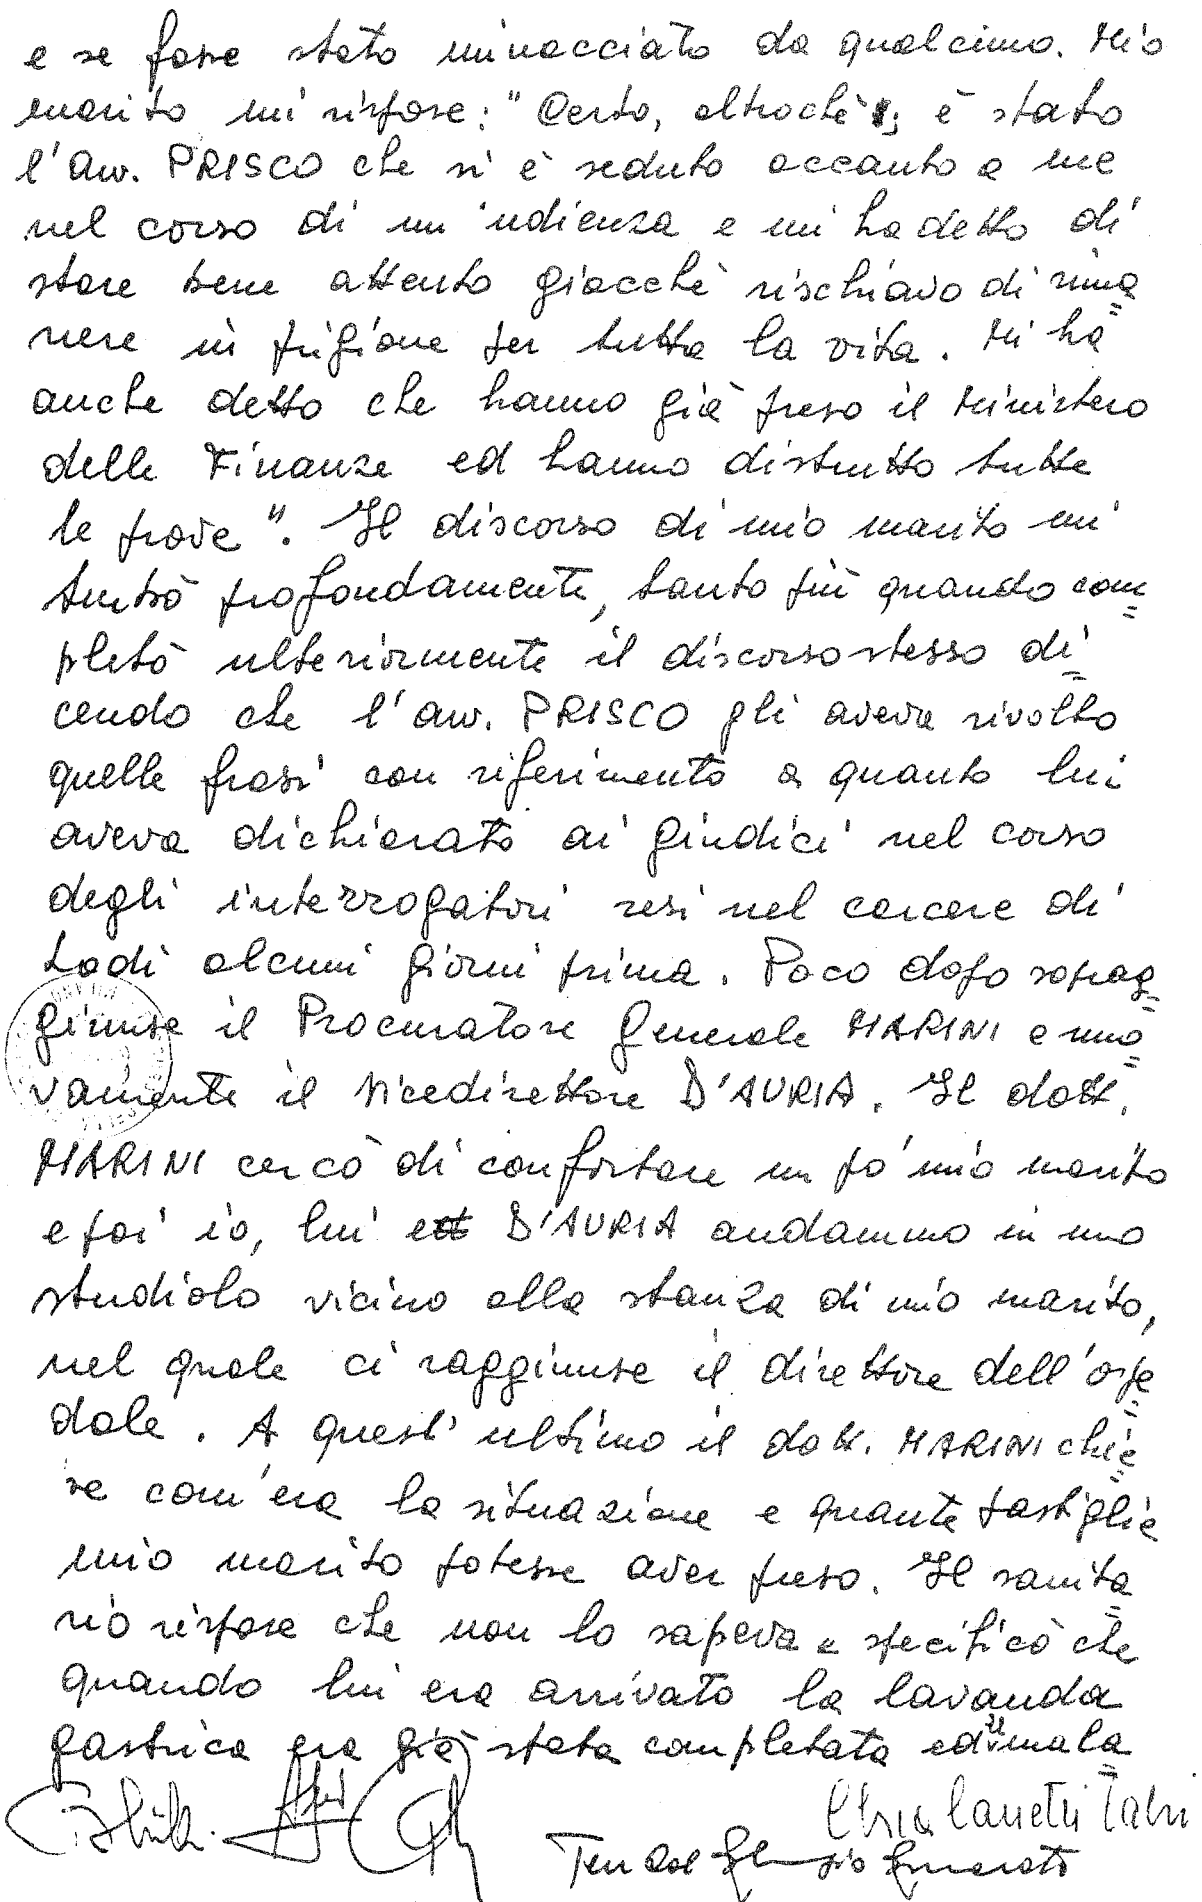 e se fosse stato minacciato da qualcuno. Mio
marito mi rispose: "Certo, altrochè; è stato
l'avv. PRISCO che si è seduto accanto a me
nel corso di un'udienza e mi ha detto di
stare bene attento giacchè rischiavo di rima=
nere in prigione per tutta la vita. Mi ha
anche detto che hanno già preso il Ministero
delle Finanze ed hanno distrutto tutte
le prove". Il discorso di mio marito mi
turbò profondamente, tanto più quando com=
pletò ulteriormente il discorso stesso di=
cendo che l'avv. PRISCO gli aveva rivolto
quelle frasi con riferimento a quanto lui
aveva dichiarato ai giudici nel corso
degli interrogatori resi nel carcere di
Lodi alcuni giorni prima. Poco dopo soprag=
giunse il Procuratore Generale MARINI e nuo=
vamente il Vicedirettore D'AURIA. Il dott.
MARINI cercò di confortare un pò mio marito
e poi io, lui e D'AURIA andammo in uno
studiolo vicino alla stanza di mio marito,
nel quale ci raggiunse il direttore dell'ospe=
dale. A quest'ultimo il dott. MARINI chie=
se com'era la situazione e quante pastiglie
mio marito potesse aver preso. Il sanita=
rio rispose che non lo sapeva e specificò che
quando lui era arrivato la lavanda
gastrica era già stata completata ed il mala=
Ten Col